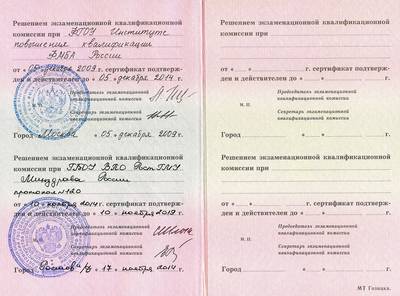 Решением экзаменационной квалификационной
комиссии при ФГОУ Институте
повышения квалификации
ФМБА России
от « 05 » декабря 2009 г. сертификат подтверж-
ден и действителен до « 05 » декабря 2014 г.
Председатель экзаменационной
квалификационной комиссии
М. П.
Секретарь экзаменационной
квалификационной комиссии
Город Москва « 05 » декабря 2009 г.
Решением экзаменационной квалификационной
комиссии при ГБОУ ВПО РостГМУ
Минздрава России
протокол №120
от « 10 » ноября 2014 г. сертификат подтверж-
ден и действителен до « 10 » ноября 2019 г.
Председатель экзаменационной
квалификационной комиссии
Секретарь экзаменационной
квалификационной комиссии
Город Ростов н/Д « 17 » ноября 2014 г.
Решением экзаменационной квалификационной
комиссии при
от « » г. сертификат подтверж-
ден и действителен до « » г.
Председатель экзаменационной
квалификационной комиссии
М. П.
Секретарь экзаменационной
квалификационной комиссии
Город « » г.
Решением экзаменационной квалификационной
комиссии при
от « » г. сертификат подтверж-
ден и действителен до « » г.
Председатель экзаменационной
квалификационной комиссии
М. П.
Секретарь экзаменационной
квалификационной комиссии
Город « » г.
МТ Гознака.